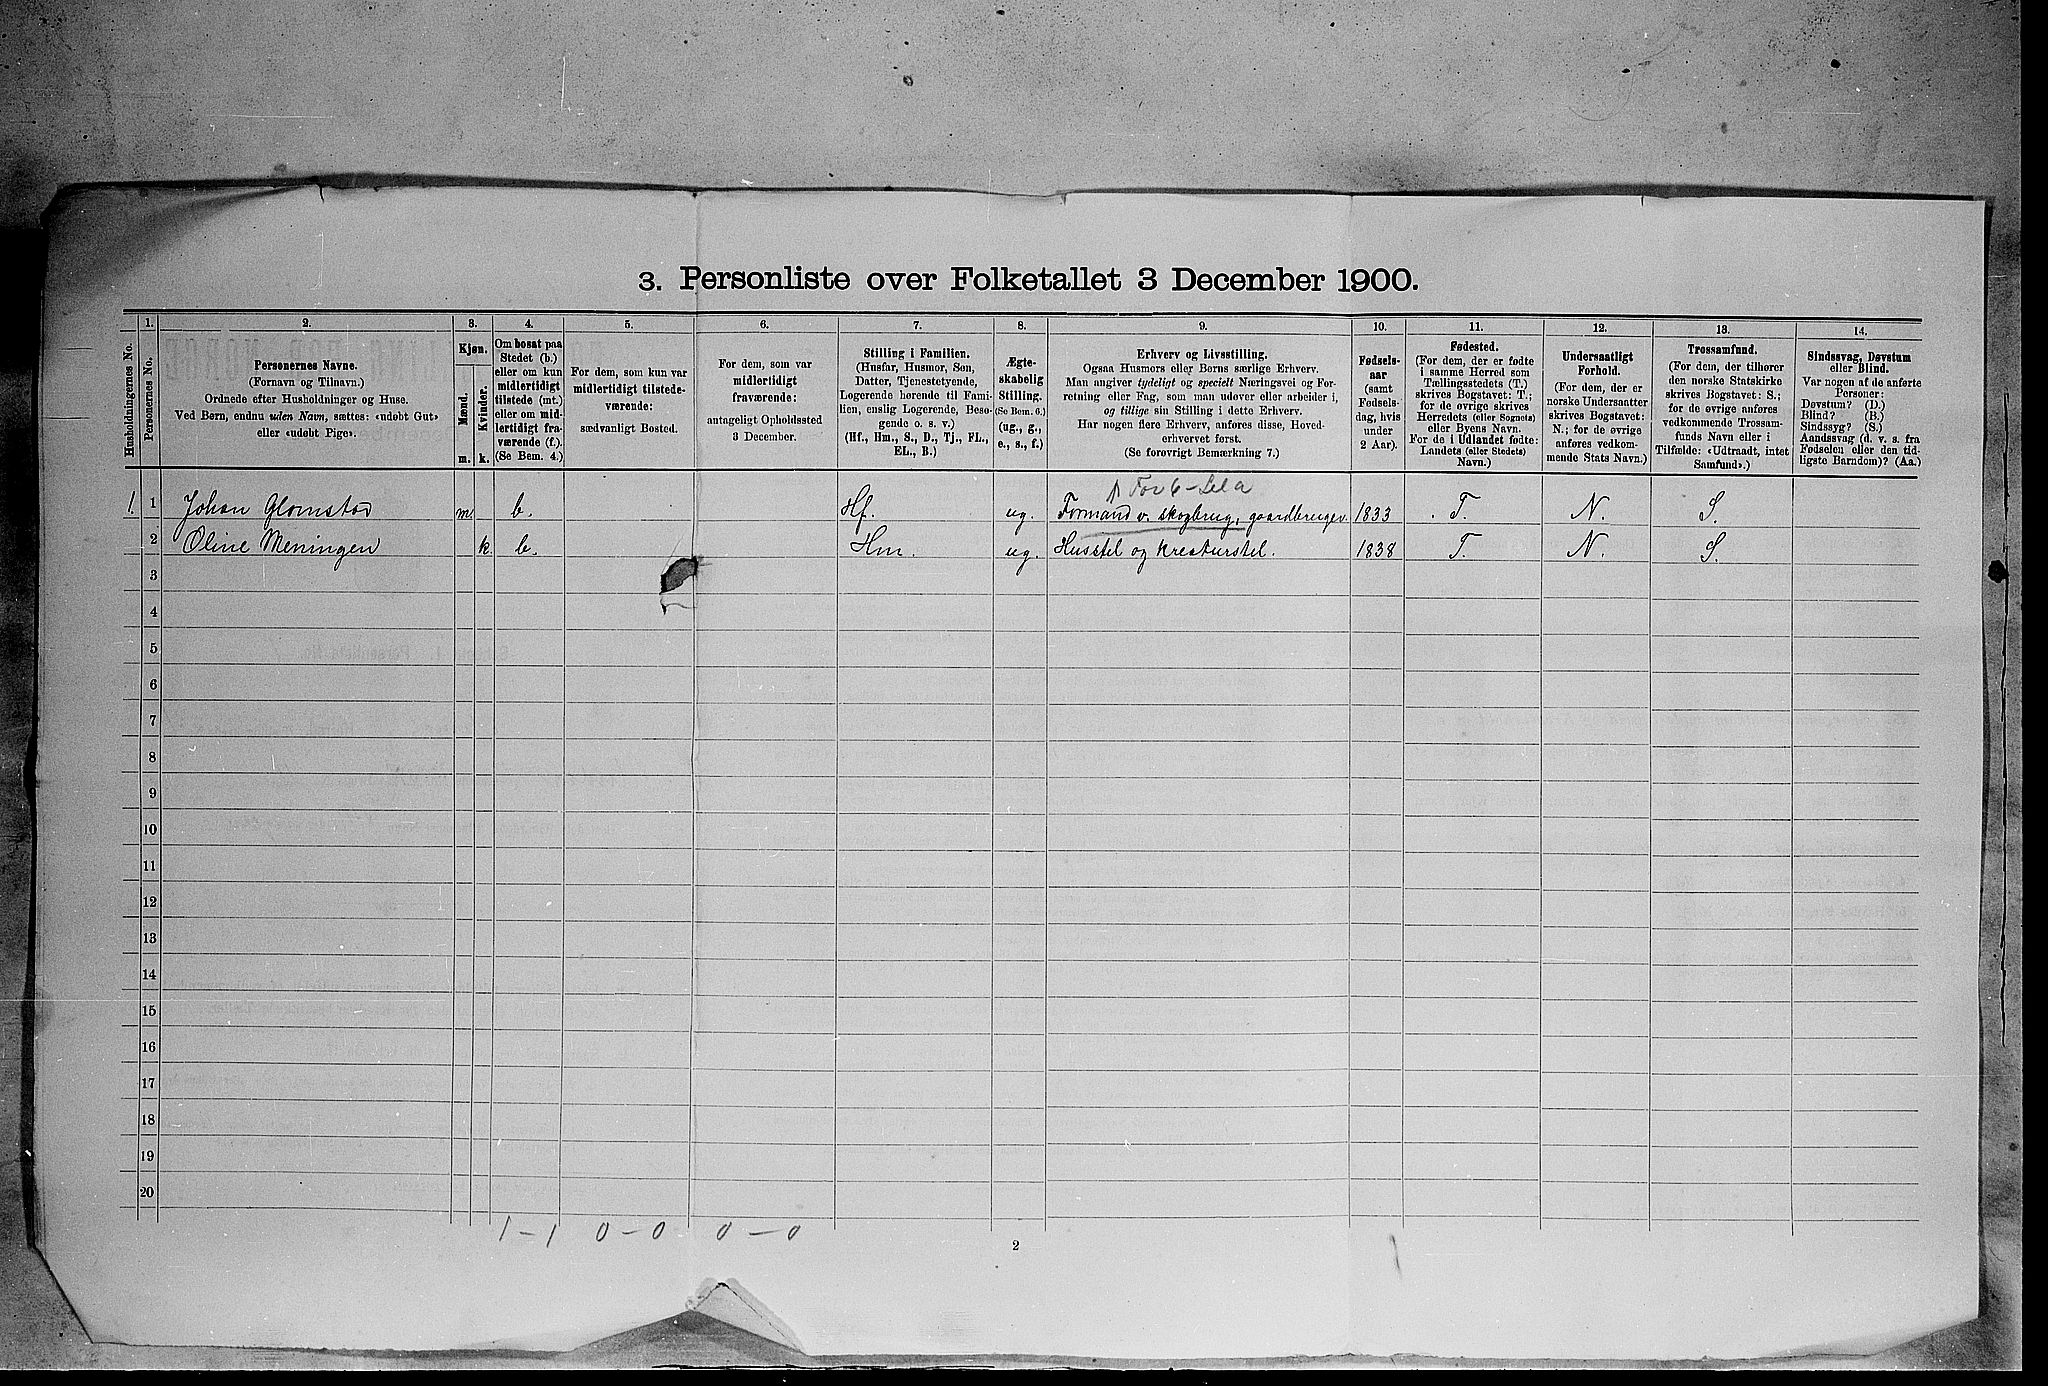 3. Personliste over Folketallet 3 December 1900.
1. 2. 3. 4. 5. 6. 7. 8. 9. 10. 11. 12. 13. 14.
Husholdningernes No.
Personernes No.
Personernes Navne.
(Fornavn og Tilnavn.)
Ordnede efter Husholdninger og Huse.
Ved Børn, endnu uden Navn, sættes: «udøbt Gut»
eller «udøbt Pige».
Kjøn.
Mænd.
Kvinder.
m. k.
Om bosat paa
Stedet (b.)
eller om kun
midlertidigt
tilstede (mt.)
eller om mid-
lertidigt fra-
værende (f.).
(Se Bem. 4.)
For dem, som kun var
midlertidigt tilstede-
værende:
sædvanligt Bosted.
For dem, som var
midlertidigt
fraværende:
antageligt Opholdssted
3 December.
Stilling i Familien.
(Husfar, Husmor, Søn,
Datter, Tjenestetyende,
Logerende hørende til Fami-
lien, enslig Logerende, Besø-
gende o. s. v.)
(Hf., Hm., S., D., Tj., FL.,
EL., B.)
Ægte-
skabelig
Stilling.
(Se Bem. 6.)
(ug., g.,
e., s., f.)
Erhverv og Livsstilling.
Ogsaa Husmors eller Børns særlige Erhverv.
Man angiver tydeligt og specielt Næringsvei og For-
retning eller Fag, som man udøver eller arbeider i,
og tillige sin Stilling i dette Erhverv.
Har nogen flere Erhverv, anføres disse, Hoved-
erhvervet først.
(Se forøvrigt Bemærkning 7.)
Fødsels-
aar
(samt
Fødsels-
dag, hvis
under
2 Aar).
Fødested.
(For dem, der er fødte
i samme Herred som
Tællingsstedets (T.)
skrives Bogstavet: T.;
for de øvrige skrives
Herredets (eller Sognets)
eller Byens Navn.
For de i Udlandet fødte:
Landets (eller Stedets)
Navn.)
Undersaatligt
Forhold.
(For dem, der er
norske Undersaatter
skrives Bogstavet:
N.; for de øvrige
anføres vedkom-
mende Stats Navn.)
Trossamfund.
(For dem, der tilhører
den norske Statskirke
skrives Bogstavet: S.;
for de øvrige anføres
vedkommende Trossam-
funds Navn eller i
Tilfælde: «Udtraadt, intet
Samfund».)
Sindssvag, Døvstum
eller Blind.
Var nogen af de anførte
Personer:
Døvstum? (D.)
Blind? (B.)
Sindssyg? (S.)
Aandssvag (d. v. s. fra
Fødselen eller den tid-
ligste Barndom)? (Aa.)
1. 1 Johan Glomstad m. b. Hf. ug. Formand v. skogbrug, gaardbruger. 1833 T. N. S.
2 Oline Meningen k. b. Hm. ug. Husstel og kreaturstel. 1838 T. N. S.
3
4
5
6
7
8
9
10
11
12
13
14
15
16
17
18
19
20
1 - 1 0 - 0 0 - 0
2